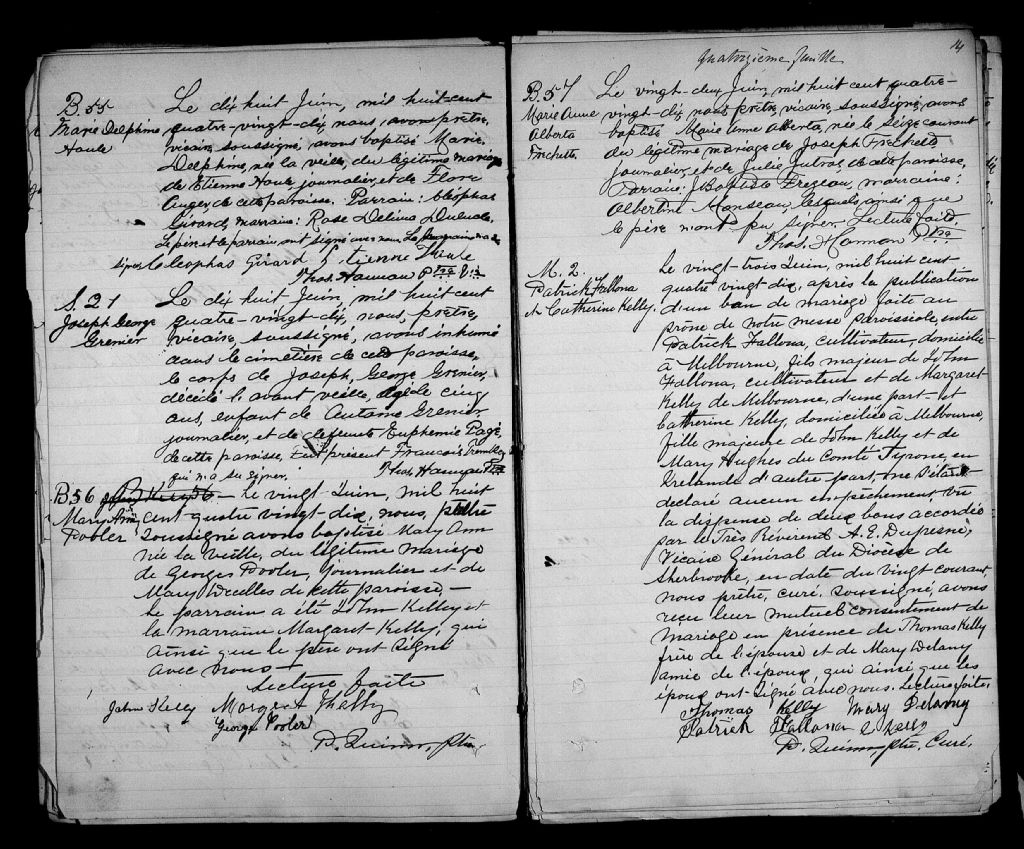 B. 55
Marie Delphine
Houle
Le dix huit Juin, mil huit-cent
quatre-vingt-dix, nous, avons prêtre,
vicaire, soussigné, avons baptisé Marie
Delphine, née la veille, du légitime mariage
de Etienne Houle, journalier, et de Flore
Auger, de cette paroisse. Parrain: Cléophas
Girard, marraine: Rose Délima
Le père et le parrain ont signé avec nous. La
signer. Cleophas Girard Etienne Houle
Thos. Hannan Ptre V.
S. 21
Joseph George
Grenier
Le dix huit Juin, mil huit cent
quatre-vingt-dix, nous, prêtre,
vicaire, soussigné, avons inhumé
dans le cimetière de cette paroisse,
le corps de Joseph, George Grenier,
décédé l'avant veille, agé de cinq
ans, enfant de Antoine Grenier
journalier, et de defeunte Euphemie Pagé,
de cette paroisse. Fut présent Francois Tremblay
qui n'a su signer. Thos. Hannan Ptre
B 56
Mary Ann
Pooler
Le vingt Juin, mil huit
cent quatre vingt dix, nous, prêtre
soussigné avons baptisé Mary Ann
née la veille, du légitime mariage
de Georges Pooler, journalier et de
Mary Weelles de cette paroisse, —
le parrain a été John Kelley et
la marraine Margaret Kelly, qui
ainsi que le père ont signé
avec nous —
Lecture faite
John Kelly Margert Kelly
George Pooler
P. Quinn, ptre
14
Quatorzième feuille
B. 57
Marie Anne
Alberta
Frechette
Le vingt-deux Juin, mil huit cent quatre-
vingt-dix, nous prêtre, vicaire, soussigné, avons
baptisé Marie Anne Alberta, née le seize courant
du légitime mariage de Joseph Frechette
journalier, et de Julie Dubois, de cette paroisse,
Parrain: J. Baptiste Frezeau, marraine:
Albertine Monseau, lesquels, ainsi que
le père n'ont pu signer. Lecture faite
Thos. Hannan Ptre
M. 2.
Patrick Fallona
& Catherine Kelly.
Le vingt-trois Juin, mil huit cent
quatre vingt dix, après la publication
d'un ban de mariage faite au
prone de notre messe paroissiale, entre
Patrick Fallona, cultivateur, domicilié
à Melbourne, fils majeur de John
Fallona, cultivateur et de Margaret
Kelly de Melbourne, d'une part - et
Catherine Kelly, domiciliée à Melbourne,
fille majeure de John Kelly et de
Mary Hughes du Comté Tyrone, en
Irelande d'autre part, ne s'étant
declaré aucun empêchement vu
la dispense de deux bans accordée
par le Très Réverent A. E. Dufresne,
Vicaire Général du Diocèse de
Sherbrooke, en date du vingt courant,
nous prêtre, curé, soussigné, avons
reçu leur mutuel consentement de
mariage en présence de Thomas Kelly
frère de l'épouse et de Mary Delany
amie de l'époux, qui ainsi que les
époux ont signé avec nous. Lecture faite.
Thomas Kelly Mary Delaney
Patrick Fallona C Kelly
P. Quinn, ptre, Curé.